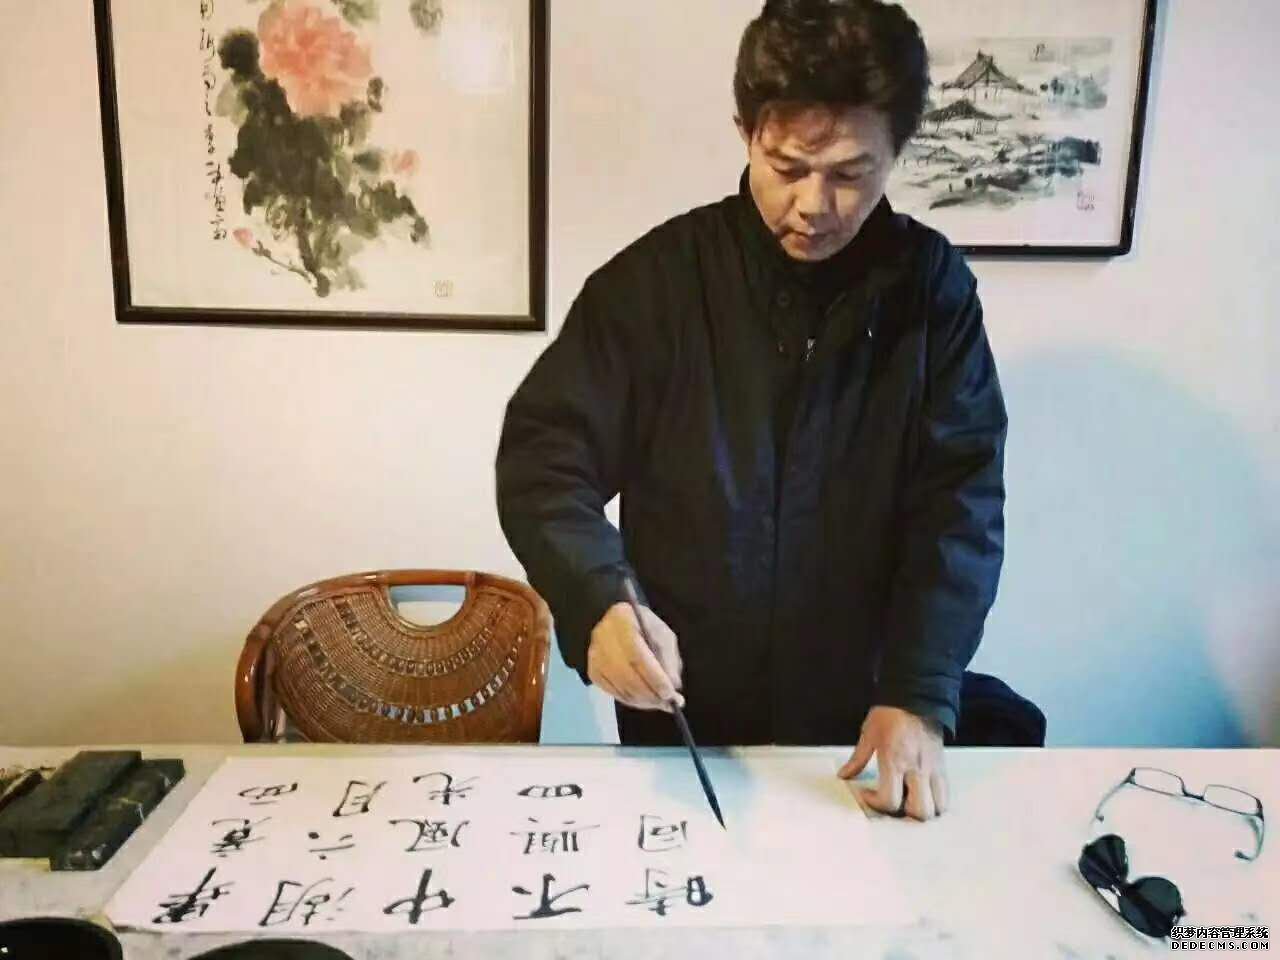 畢竟西
湖六月
中風光
不與四
時同
织梦内容管理系统
DEDECMS.COM